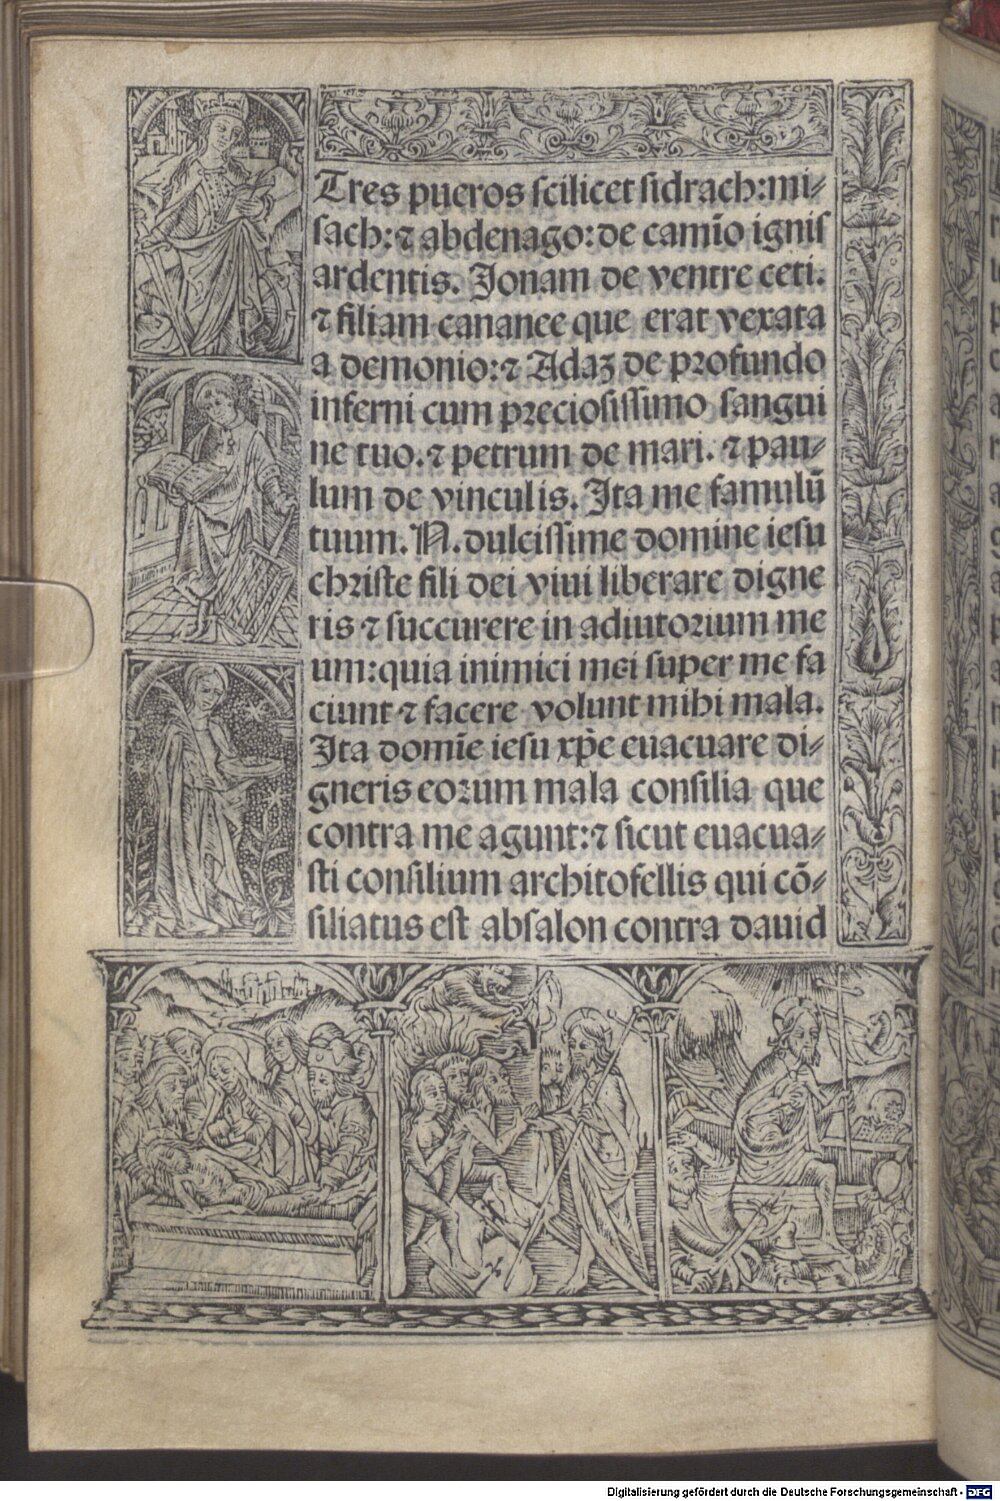 Tres pueros scilicet sidrach: mi⸗
sach: ⁊ abdenago: de camĩo ignis
ardentis. Jonam de ventre ceti.
⁊ filiam cananee que erat vexata
a demonio: ⁊ Adaꝫ de profundo
inferni cum preciosissimo sangui
ne tuo. ⁊ petrum de mari. ⁊ pau⸗
lum de vinculis. Ita me famulũ
tuum. N. dulcissime domine iesu
christe fili dei viui liberare digne
ris ⁊ succurere in adiutorium me
um: quia inimici mei super me fa
ciunt ⁊ facere volunt mihi mala.
Ita domĩe iesu xp̃e euacuare di⸗
gneris eorum mala consilia que
contra me agunt: ⁊ sicut euacua⸗
sti consilium architofellis qui cõ⸗
siliatus est absalon contra dauid
Digitalisierung gefördert durch die Deutsche Forschungsgemeinschaft - DFG